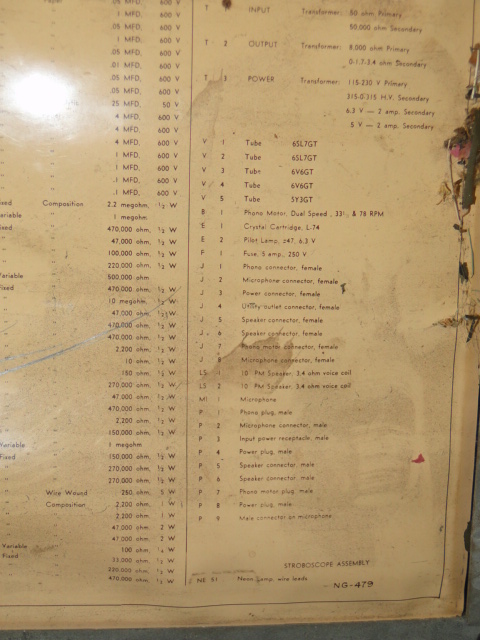 Paper .05 MFD, 600 V
.1 MFD, 600 V
.05 MFD, 600 V
.1 MFD, 600 V
.05 MFD, 600 V
.01 MFD, 600 V
.05 MFD, 600 V
.05 MFD, 600 V
25 MFD, 50 V
4 MFD, 600 V
4 MFD, 600 V
4 MFD, 600 V
.1 MFD, 600 V
.1 MFD, 600 V
.1 MFD, 600 V
.1 MFD, 600 V
Fixed Composition 2.2 megohm, ½ W
Variable 1 megohm
Fixed 470,000 ohm, ½ W
47,000 ohm, ½ W
100,000 ohm, ½ W
220,000 ohm, ½ W
Variable 500,000 ohm
Fixed 470,000 ohm, ½ W
10 megohm, ½ W
47,000 ohm, ½ W
470,000 ohm, ½ W
470,000 ohm, ½ W
2,200 ohm, ½ W
10 ohm, ½ W
150 ohm, ½ W
270,000 ohm, ½ W
47,000 ohm, ½ W
470,000 ohm, ½ W
2,200 ohm, ½ W
150,000 ohm, ½ W
Variable 1 megohm
Fixed 150,000 ohm, ½ W
270,000 ohm, ½ W
270,000 ohm, ½ W
Wire Wound 260 ohm, 5 W
Composition 2,200 ohm, 1 W
2,200 ohm, 1 W
47,000 ohm, 2 W
47,000 ohm, 2 W
Variable 100 ohm, W
Fixed 33,000 ohm, ½ W
220,000 ohm, ½ W
470,000 ohm, ½ W
T INPUT Transformer: 50 ohm Primary
50,000 ohm Secondary
T 2 OUTPUT Transformer: 8,000 ohm Primary
0-1.7-3.4 ohm Secondary
T 3 POWER Transformer: 115-230 V Primary
315-0-315 H.V. Secondary
6.3 V — 2 amp. Secondary
5 V — 2 amp. Secondary
V 1 Tube 6SL7GT
V 2 Tube 6SL7GT
V 3 Tube 6V6GT
V 4 Tube 6V6GT
V 5 Tube 5Y3GT
B 1 Phono Motor, Dual Speed, 33⅓ & 78 RPM
E 1 Crystal Cartridge, L-74
E 2 Pilot Lamp, #47, 6.3 V
F 1 Fuse, 5 amp., 250 V
J 1 Phono connector, female
J 2 Microphone connector, female
J 3 Power connector, female
J 4 Utility outlet connector, female
J 5 Speaker connector, female
J 6 Speaker connector, female
J 7 Phono motor connector, female
J 8 Microphone connector, female
LS 1 10" PM Speaker, 3.4 ohm voice coil
LS 2 10" PM Speaker, 3.4 ohm voice coil
MI 1 Microphone
P 1 Phono plug, male
P 2 Microphone connector, male
P 3 Input power receptacle, male
P 4 Power plug, male
P 5 Speaker connector, male
P 6 Speaker connector, male
P 7 Phono motor plug, male
P 8 Power plug, male
P 9 Male connector on microphone
STROBOSCOPE ASSEMBLY
NE 51 Neon Lamp, wire leads
NG-479